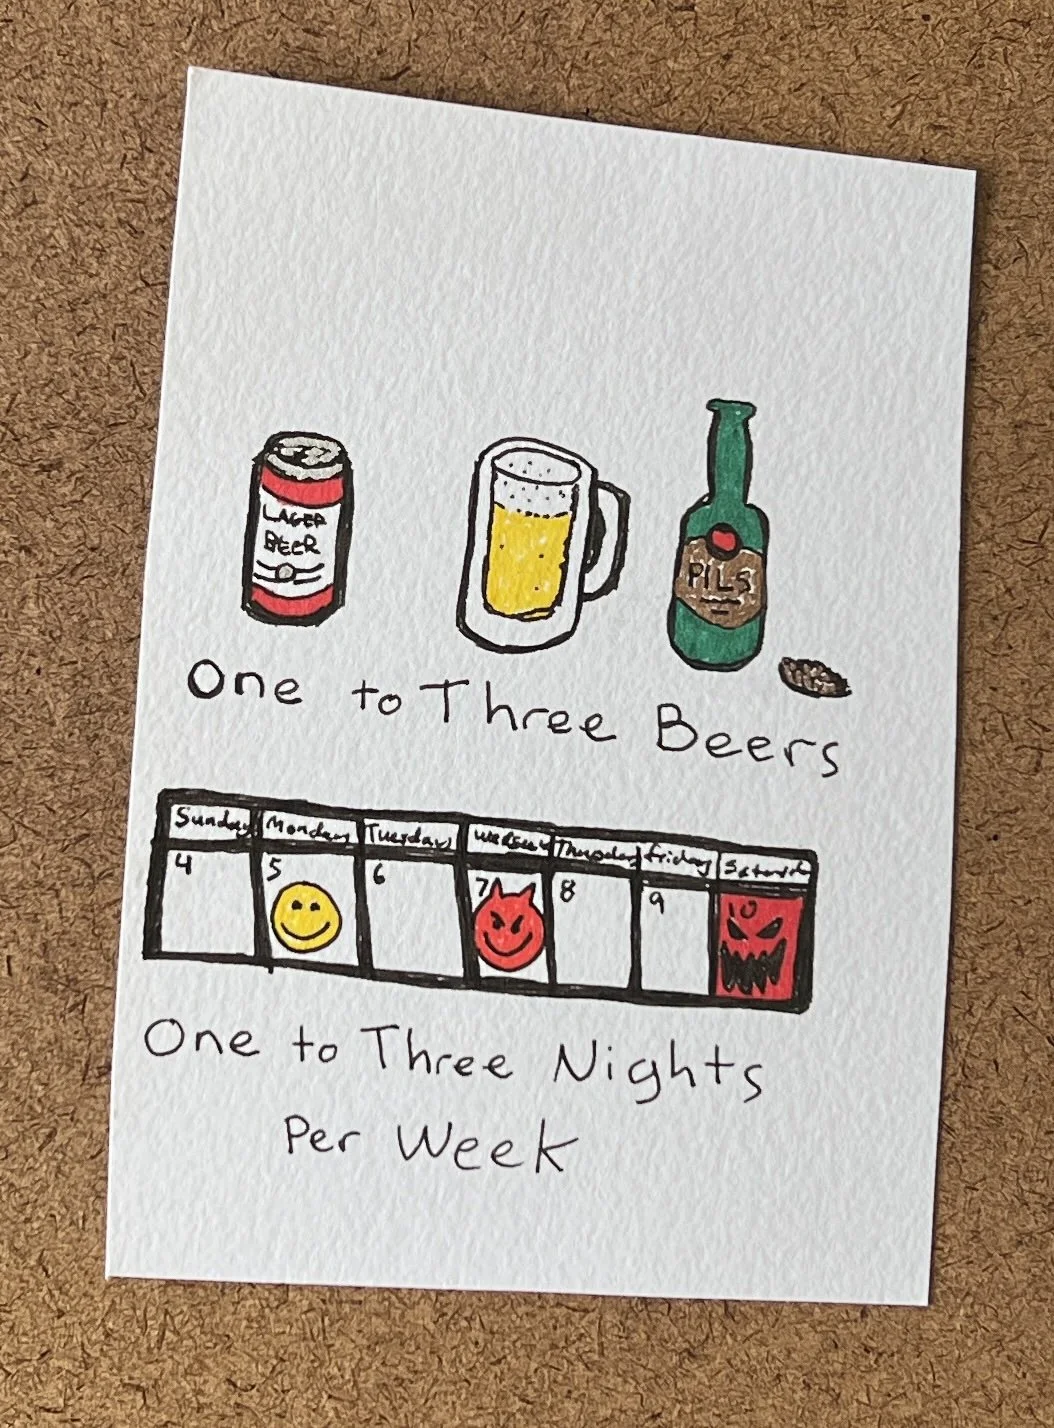 LAGER
BEER
PILS
One to Three Beers
Sunday Monday Tuesday Thursday Friday Saturday
4 5 6 7 8 9 10
One to Three Nights
Per Week